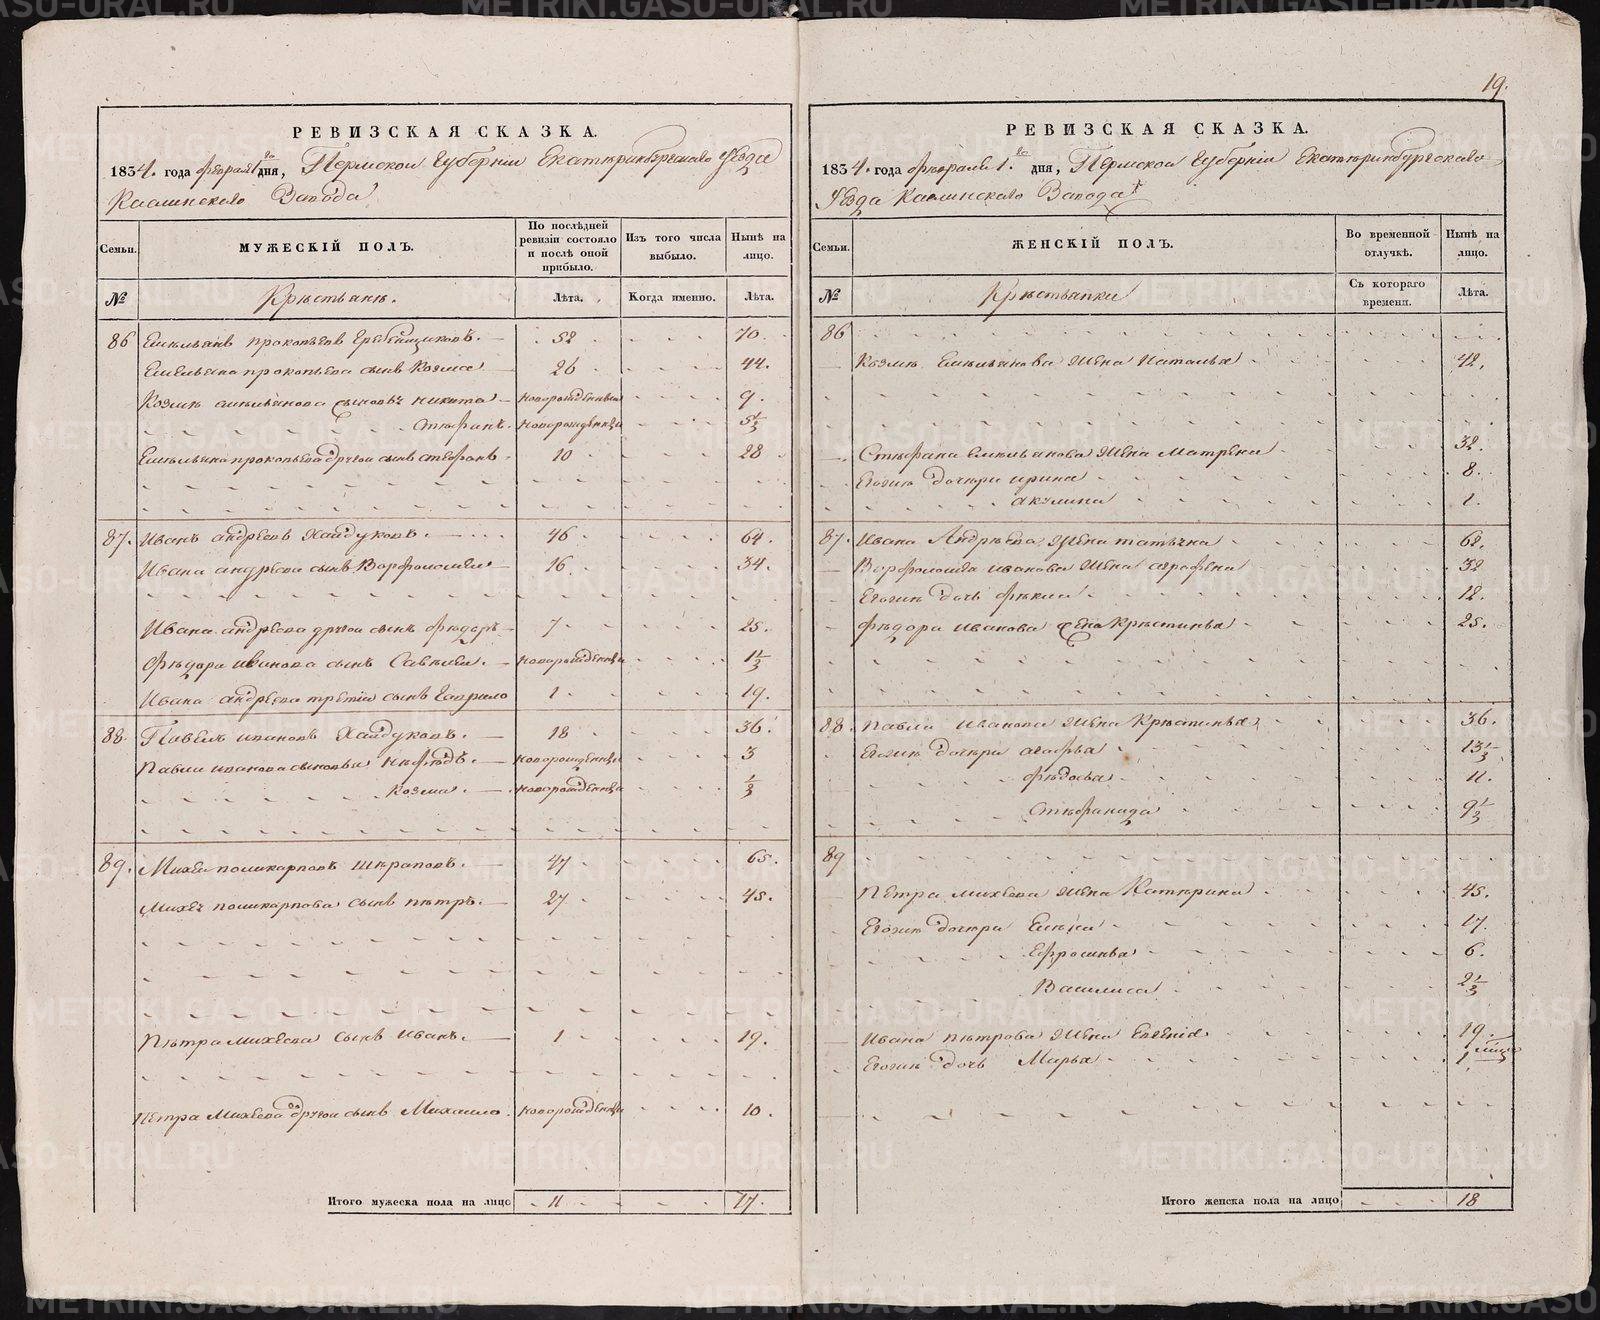 19.
РЕВИЗСКАЯ СКАЗКА.
1834. года февраля 1го дня, Пермской Губерніи Екатеринбургскаго уезда
Каслинскаго Завода
Семьи.
МУЖЕСКІЙ ПОЛЪ.
По послѣдней ревизіи состояло и послѣ оной прибыло.
Изъ того числа выбыло.
Нынѣ на лицо.
№
Крестьяне.
Лѣта.
Когда именно.
Лѣта.
86 Емельянъ прокопьевъ Гребенщиковъ. 52 70.
Емельяна прокопьева сынъ Козма 26 44.
Козмы емельянова сыновья никита новорожденный 9.
Стефанъ. новорожденны 5 1/3
Емельяна прокопьева другой сынъ стефанъ 10 28
87. Иванъ андреевъ Хайдуковъ. 46 64.
Ивана андреева сынъ Ворфоломей 16 34.
Ивана андреева другой сынъ федоръ 7 25.
Федора иванова сынъ Савелей. новорожденны 1 1/3
Ивана андреева третій сынъ Гаврило 1 19.
88. Павелъ ивановъ Хайдуковъ. 18 36.
Павла иванова сыновья нефедъ. новорожденны 3
Козма. новорожденны 1/3
89. Михей поликарповъ Шераповъ. 47 65.
Михея поликарпова сынъ петръ. 27 45.
Петра михеева сынъ иванъ. 1 19.
Петра Михеева другой сынъ Михаило. новорожденны 10.
Итого мужеска пола на лицо 11 17.
РЕВИЗСКАЯ СКАЗКА.
1834. года февраля 1.го дня, Пермской Губерніи Екатеринбургскаго
Уезда Каслинскаго Завода
Семьи.
ЖЕНСКІЙ ПОЛЪ.
Во временной отлучкѣ.
Нынѣ на лицо.
№
Крестьянки
Съ котораго времени.
Лѣта.
86
Козмы Емельянова жена Наталья 42.
Стефана емельянова жена Матрена 32.
Егожъ дочери ирина 8.
акулина 1.
87. Ивана Андреева жена татьяна 62.
Ворфоломея иванова жена аграфена 32
Егожъ дочь фекла 12.
федора иванова жена Крестинья 25.
88. Павла иванова жена Крестинья 36.
Егожъ дочери агафья 13 1/3
федосья 11.
Стефанида 9 1/3
89
Петра михеева жена Катерина 45.
Егожъ дочери Елена 17.
Ефросинья 6.
Василиса 2 1/3
Ивана петрова жена Евгенія 19.
Егожъ дочь Марья 1
Итого женска пола на лицо 18
METRIKI.GASO-URAL.RU